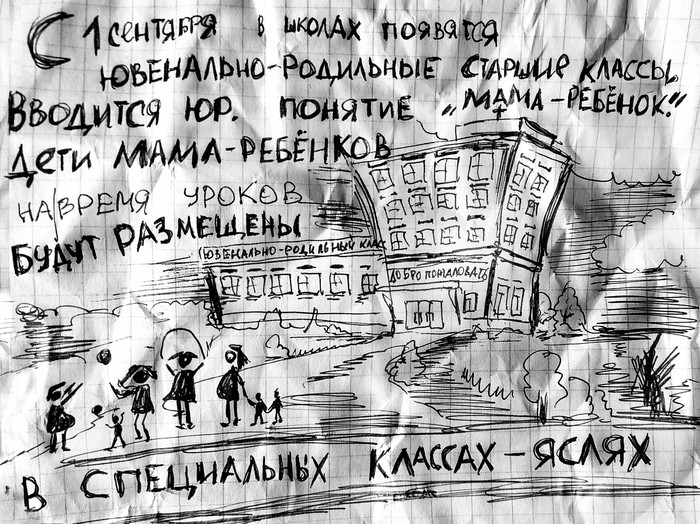 С 1 сентября в школах появятся
ювенально-родильные старшие классы,
Вводится юр. понятие „мама-ребёнок."
Дети мама-ребёнков
на время уроков
будут размещены
(ювенально-родильный класс
добро пожаловать
в специальных классах-яслях